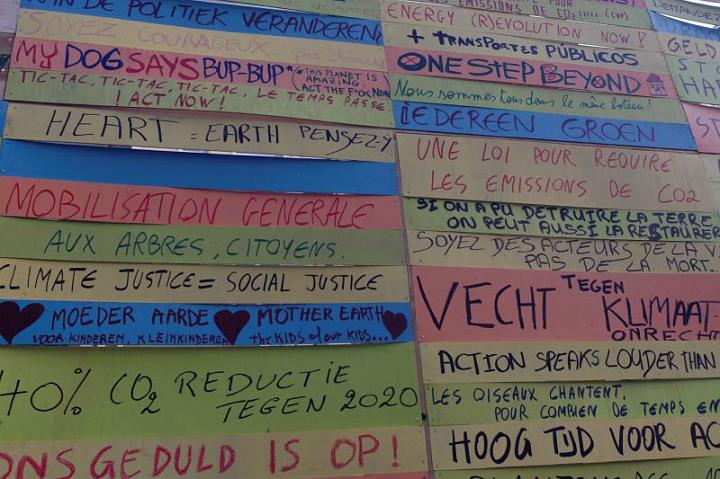 DE POLITIEK VERANDEREN
SOYEZ COURAGEUX
MY DOG SAYS BUP-BUP*
*(THIS PLANET IS
AMAZING.
ACT THE F*CK NOW)
TIC-TAC, TIC-TAC, TIC-TAC. LE TEMPS PASSE
! ACT NOW!
HEART = EARTH PENSEZ-Y
MOBILISATION GENERALE
AUX ARBRES, CITOYENS.
CLIMATE JUSTICE = SOCIAL JUSTICE
MOEDER AARDE MOTHER EARTH
VOOR KINDEREN, KLEINKINDEREN the KIDS of our KIDS...
40% CO2 REDUCTIE
TEGEN 2020
ONS GEDULD IS OP!
EMISSIONS DE CO2
ENERGY (R)EVOLUTION NOW!
+ TRANSPORTES PÚBLICOS
ONE STEP BEYOND
Nous sommes tous dans le même bateau!
IEDEREEN GROEN
UNE LOI POUR REDUIRE
LES EMISSIONS DE CO2
SI ON A PU DETRUIRE LA TERRE
ON PEUT AUSSI LA RESTAURER
SOYEZ DES ACTEURS DE LA
PAS DE LA MORT.
VECHT TEGEN
KLIMAAT-
ONRECHT
ACTION SPEAKS LOUDER THAN
LES OISEAUX CHANTENT.
POUR COMBIEN DE TEMPS
HOOG TIJD VOOR